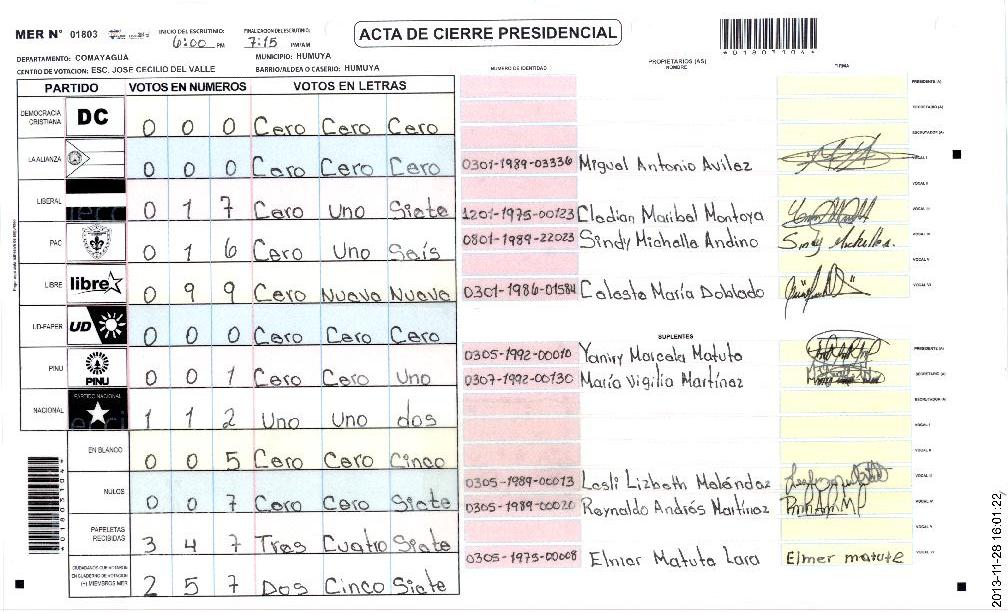 MER N° 01803
INICIO DEL ESCRUTINIO: 6:00 PM
FINALIZACION DEL ESCRUTINIO: 7:15 PM/AM
ACTA DE CIERRE PRESIDENCIAL
*01803104*
DEPARTAMENTO: COMAYAGUA
MUNICIPIO: HUMUYA
CENTRO DE VOTACION: ESC. JOSE CECILIO DEL VALLE
BARRIO/ALDEA O CASERIO: HUMUYA
NUMERO DE IDENTIDAD
PROPIETARIOS (AS)
NOMBRE
FIRMA
PARTIDO VOTOS EN NUMEROS VOTOS EN LETRAS
DEMOCRACIA CRISTIANA DC 0 0 0 Cero Cero Cero
LA ALIANZA 0 0 0 Cero Cero Cero
LIBERAL 0 1 7 Cero Uno Siete
PAC 0 1 6 Cero Uno Seís
LIBRE libre 0 9 9 Cero Nueve Nueve
UD-FAPER UD 0 0 0 Cero Cero Cero
PINU PINU 0 0 1 Cero Cero Uno
NACIONAL PARTIDO NACIONAL 1 1 2 Uno Uno dos
EN BLANCO 0 0 5 Cero Cero Cinco
NULOS 0 0 7 Cero Cero Siete
PAPELETAS RECIBIDAS 3 4 7 Tres Cuatro Siete
CIUDADANOS QUE VOTARON EN CUADERNO DE VOTACION (+) MIEMBROS MER 2 5 7 Dos Cinco Siete
*01803104*
PRESIDENTE (A)
SECRETARIO (A)
ESCRUTADOR (A)
0301-1989-03336 Miguel Antonio Avilez VOCAL I
VOCAL II
1201-1975-00123 Cledian Maribel Montoya VOCAL III
0801-1989-22023 Sindy Michelle Andino Sindy Michelle A. VOCAL IV
VOCAL V
0301-1986-01584 Celeste María Doblado VOCAL VI
SUPLENTES
0305-1992-00010 Yaniry Marcela Matute PRESIDENTE (A)
0307-1992-00130 María Vigilia Martínez SECRETARIO (A)
ESCRUTADOR (A)
VOCAL I
VOCAL II
0305-1989-00013 Lesli Lizbeth Meléndez VOCAL III
0305-1989-00020 Reynaldo Andrés Martínez VOCAL IV
VOCAL V
0305-1975-00008 Elmer Matute Lara Elmer matute VOCAL VI
2013-11-28 16:01:22